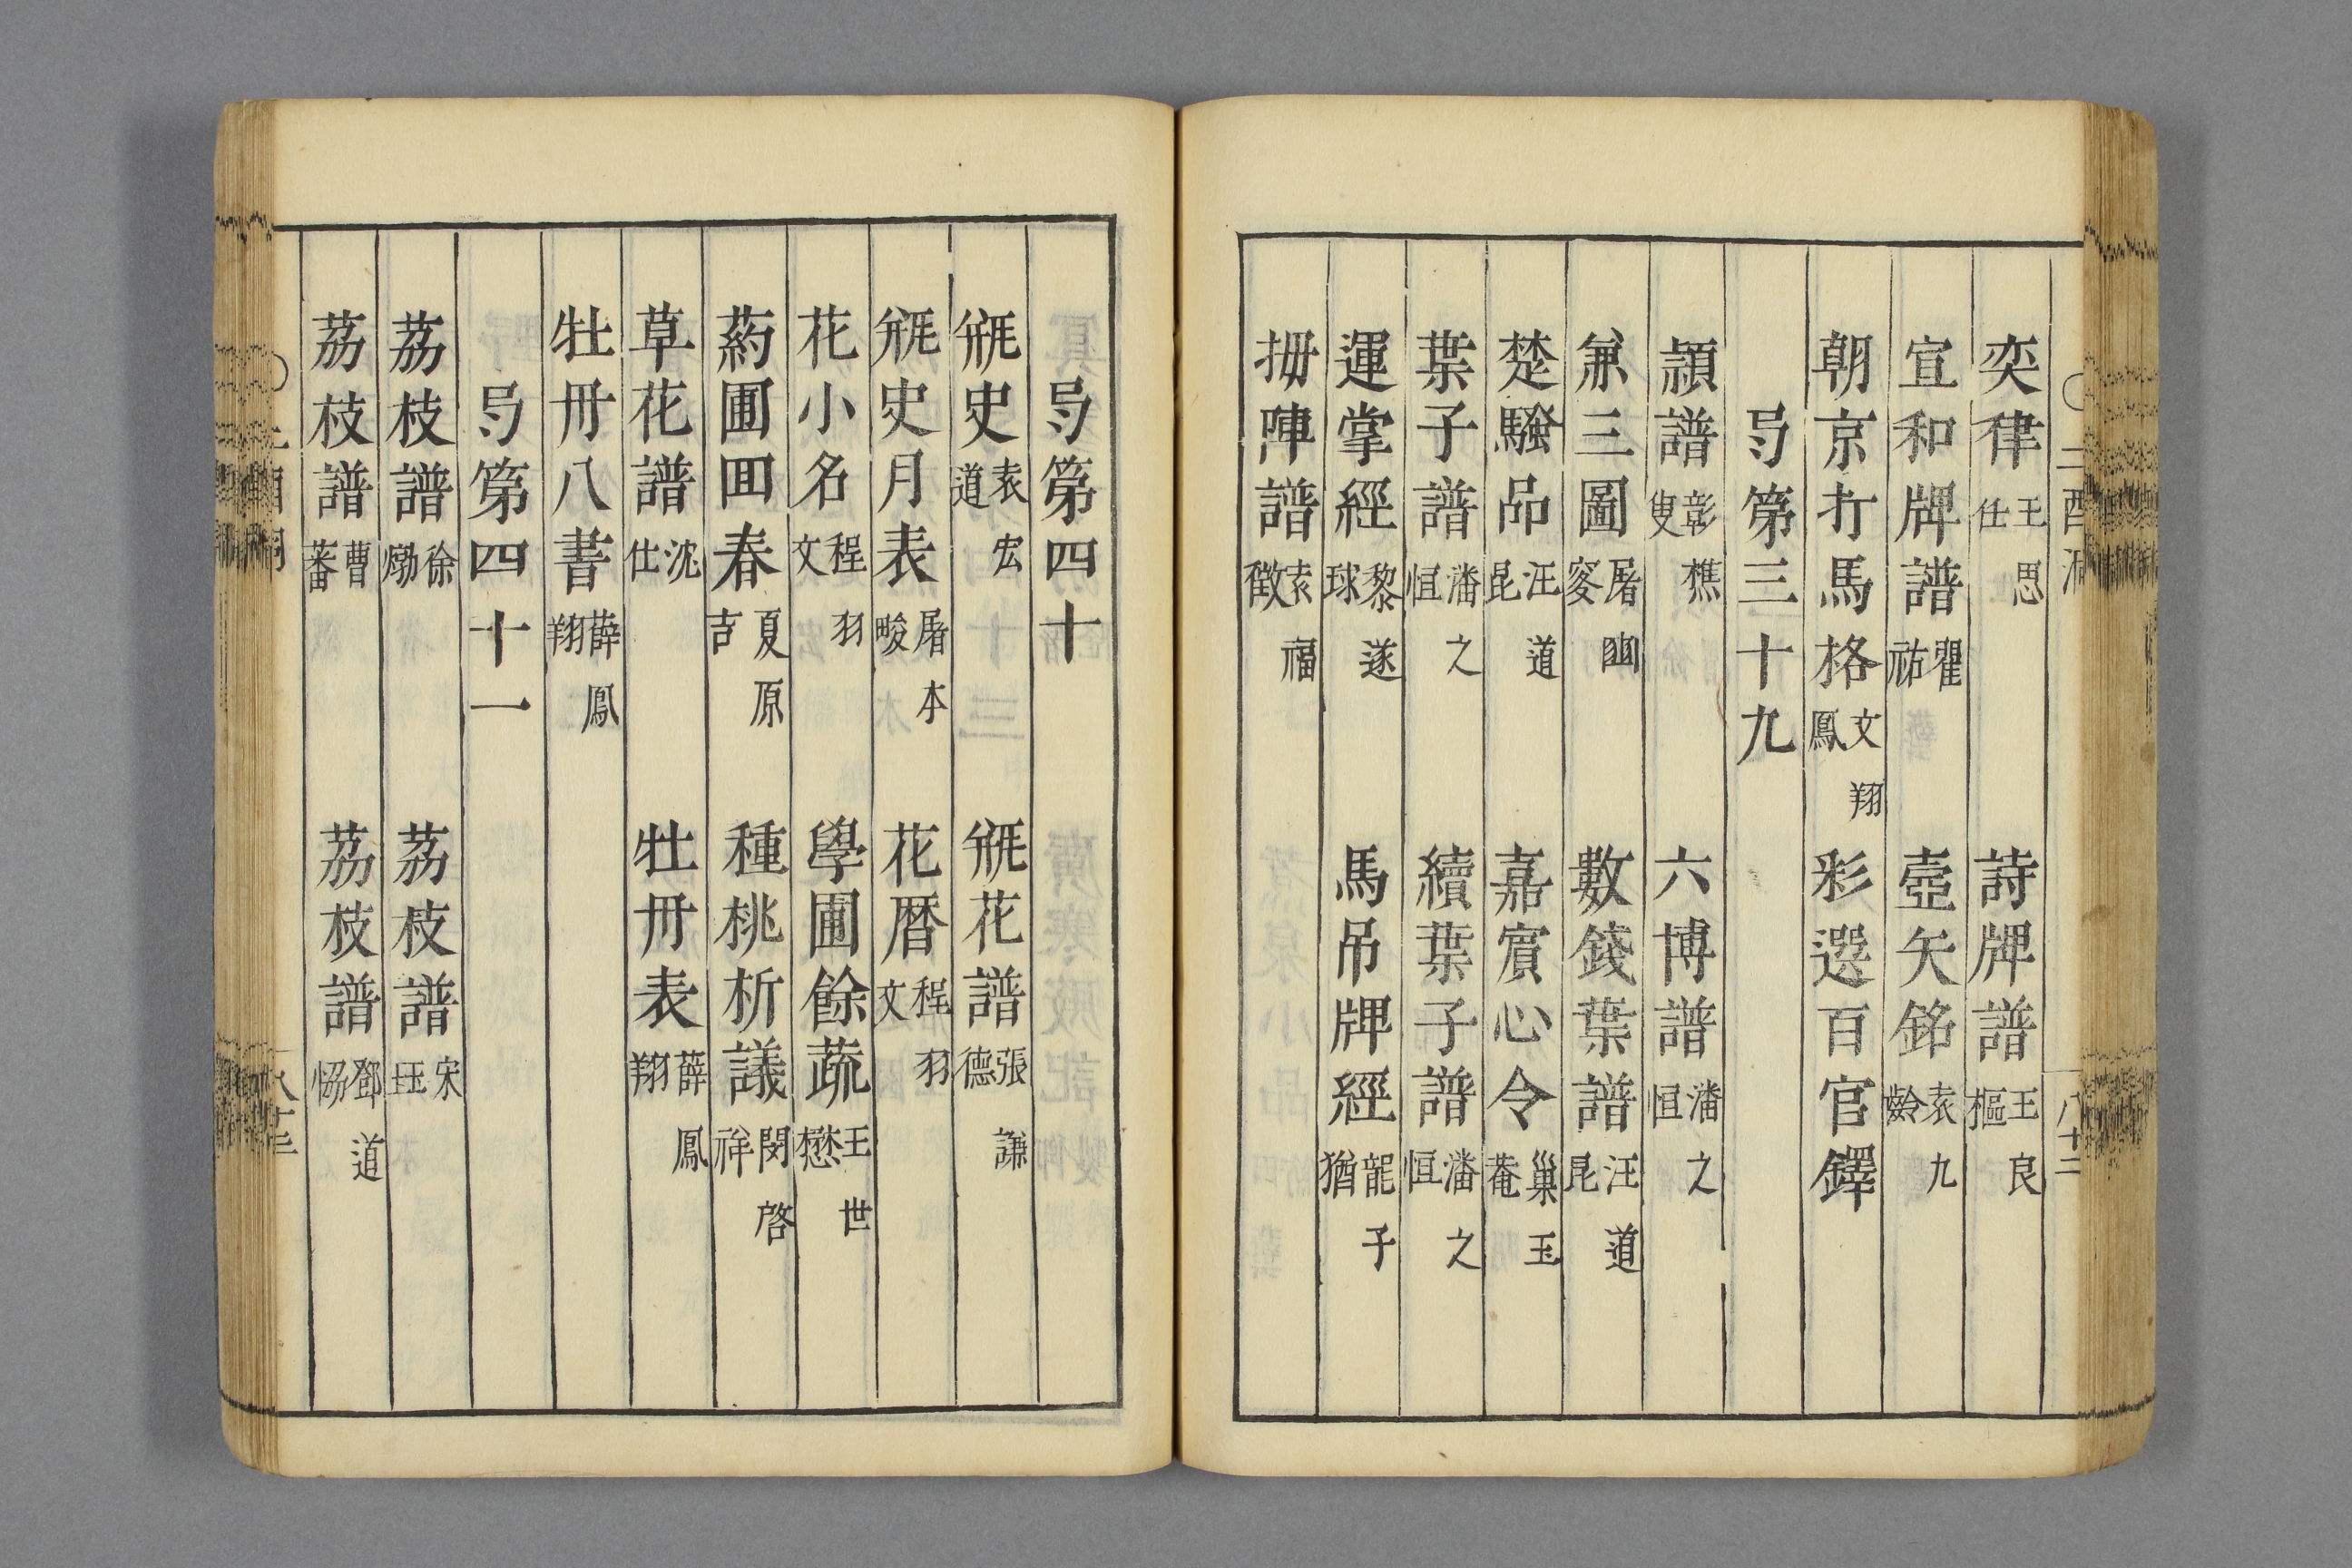 奕律王思仕　詩牌譜王良樞
宣和牌譜瞿祐　壺矢銘袁九齡
朝京打馬格文翔鳳　彩選百官鐸
弓第三十九
頴譜彰樵叟　六博譜潘之恒
兼三圖屠豳叜　數錢葉譜汪道昆
楚騷品汪道昆　嘉賓心令巢玉菴
葉子譜潘之恒　續葉子譜潘之恒
運掌經黎遂球　馬吊牌經龍子猶
拇陣譜袁福徵
弓第四十
瓶史袁宏道　瓶花譜張謙德
瓶史月表屠本畯　花曆程羽文
花小名程羽文　學圃餘蔬王世懋
葯圃同春夏原吉　種桃析議閔啓祥
草花譜沈仕　牡丹表薛鳳翔
牡丹八書薛鳳翔
弓第四十一
荔枝譜徐𤊹　荔枝譜宋珏
荔枝譜曹蕃　荔枝譜鄧道協
八十二